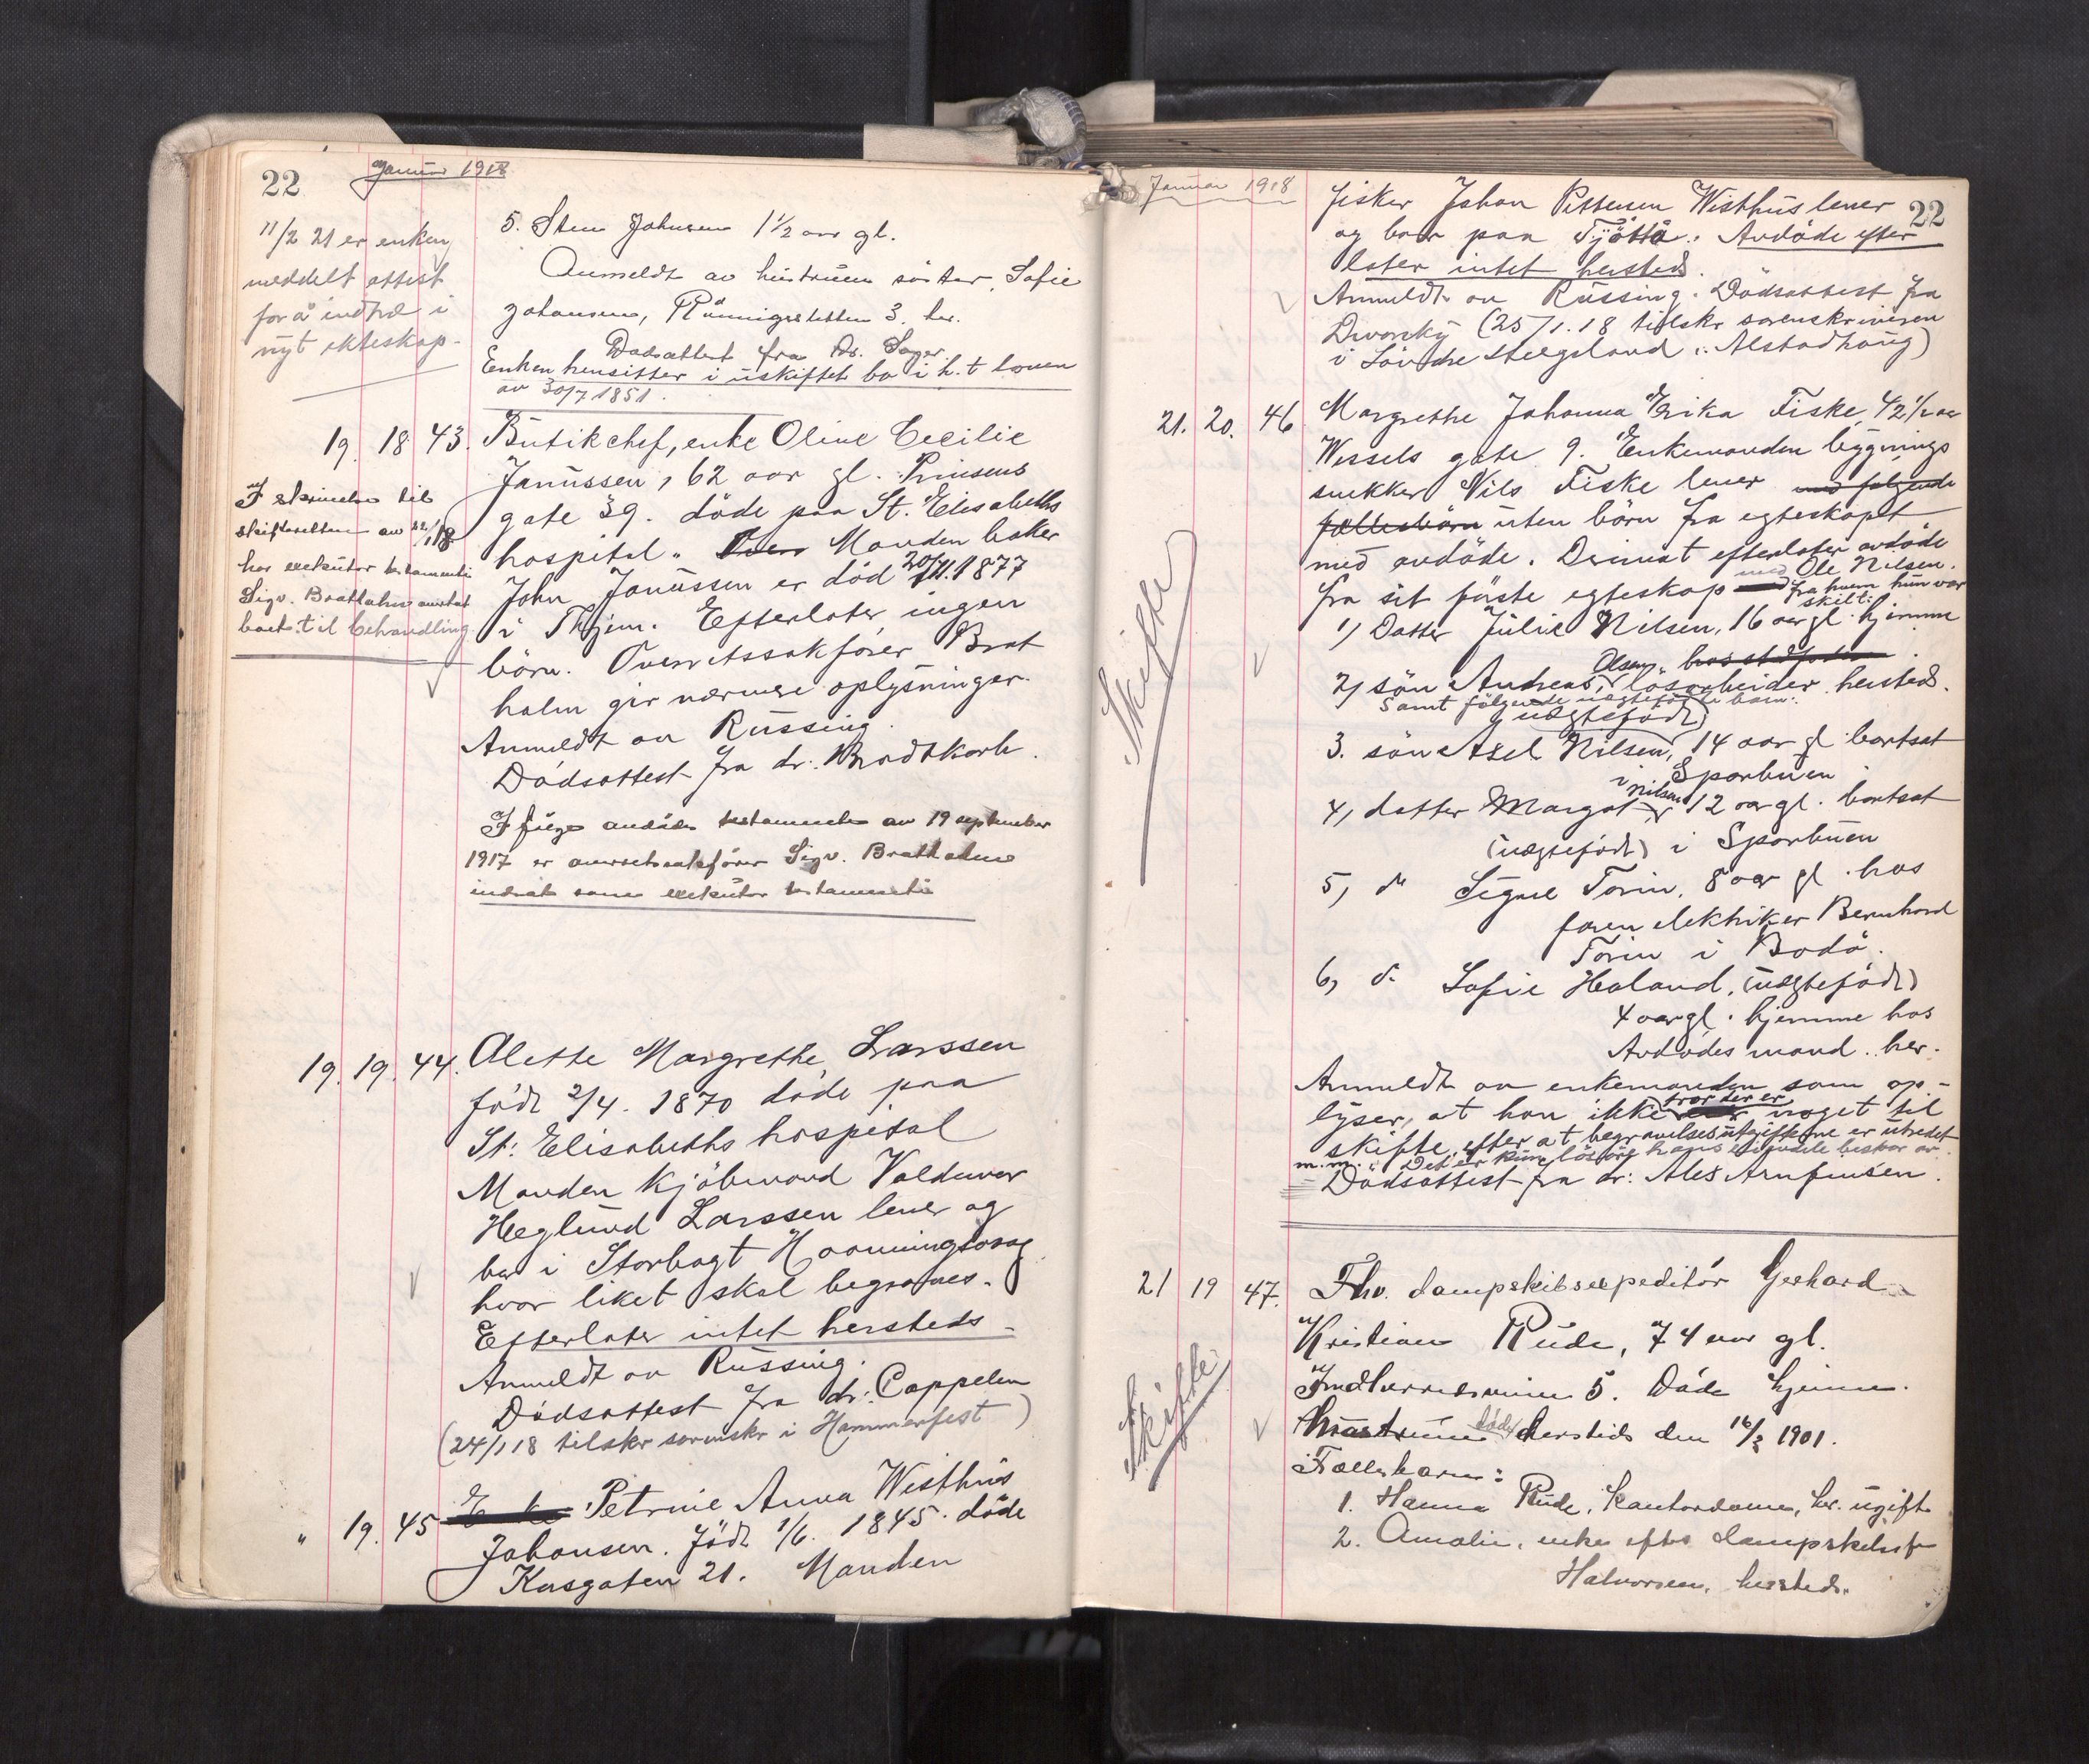 22
Januar 1918
11/2 21 er enken
meddelt attest
for å indtræ i
nyt ekteskap.
5. Sten Johnsen 1½ aar gl.
Anmeldt av hustruens søster, Sofie
Johansen, Rünnigsletten 3. her.
Dødsattest fra Dr.
Enken hensitter i uskiftet bo i h.t loven
av 30/7 1851.
19. 18 43. Butikchef, enke Oline Cecilie
Janussen, 62 aar gl. Prinsens
gate 39. döde paa St. Elisabeths
hospital. Manden baker
John Janussen er död 20/11.1877
i Thjem. Efterlater ingen
börn. Overretssakförer Brat
holm gir nærmere oplysninger.
Anmeldt av Russing
Dödsattest fra dr. Brodtkorb.
I skrivelse til
skifteretten av 22/1 18
har executor testamenti
Sigv. Bratholm anmeldt
boet til behandling.
Ifølge avdødes testamente av 19 september
1917 er overretssakfører Sigv. Bratholm
indsat som executor testamenti
19. 19. 44. Alette Margrethe Larssen
födt 2/4. 1870 döde paa
St. Elisabeths hospital
Manden Kjöbmand Valdemar
Heglund Larssen lever og
bor i Storbugt Honningsvaag
hvor liket skal begraves.
Efterlater intet hersteds.
Anmeldt av Russing.
Dödsattest fra dr. Cappelen
(24/1 18 tilskr sorenskr i Hammerfest)
" 19. 45 Enke Petrine Anna Wisthus
Johansen. Födt 1/6. 1845. döde
Kongsgaten 21. Manden
Januar 1918
22
fisker Johan Pettersen Wisthus lever
og bor paa Tjöttö. Avdöde efter
later intet hersteds.
Anmeldt av Russing. Dödsattest fra
Dworsky (25/1.18 tilskr sorenskriveren
i Söndre Helgeland, Alstadhaug)
21. 20. 46 Margrethe Johanna Erika Fiske, 42½ aar
Wessels gate 9. Enkemanden bygnings
snekker Nils Fiske lever med følgende
fællesbörn uten börn fra egteskapet
med avdöde. Derimot efterlater avdöde
fra sit förste egteskap med Ole Nilsen.
fra hvem hun var
skilt:
1) Datter Julie Nilsen, 16 aar gl. hjemme
hos stedfader
2) sön Andreas Olsen, lösarbeider hersteds.
Samt følgende uegtefødte barn:
(uegtefödt)
3. sön Axel Nilsen, 14 aar gl bortsat
i Sparbuen
4, datter Margot Nilsen 12 aar gl. bortsat
(uegtefödt) i Sparbuen
5, d. Signe Torin, 8 aar gl. hos
faren elektriker Bernhard
Torin i Bodö.
6, d. Sofie Haland, (uegtefödt)
4 aar gl. hjemme hos
Avdödes mand. her.
Anmeldt av enkemanden som op-
lyser, at han ikke tror der er noget til
skifte, efter at begravelsesutgifterne er utredet
m.m. Det er kun løsøre hans eiendele består av.
Dödsattest fra dr: Alex Arnfinsen.
Skifte
21 19 47. Fhv. dampskibsexpeditör Gerhard
Kristian Rude, 74 aar gl.
Indherredsveien 5. Döde hjemme.
Hustruen døde hersteds den 16/3 1901.
Fællesbarn:
1. Hanna Rude, kontordame, her. ugift
2. Amalie, enke efter dampskibsf
Halvorsen, hersteds.
Skifte